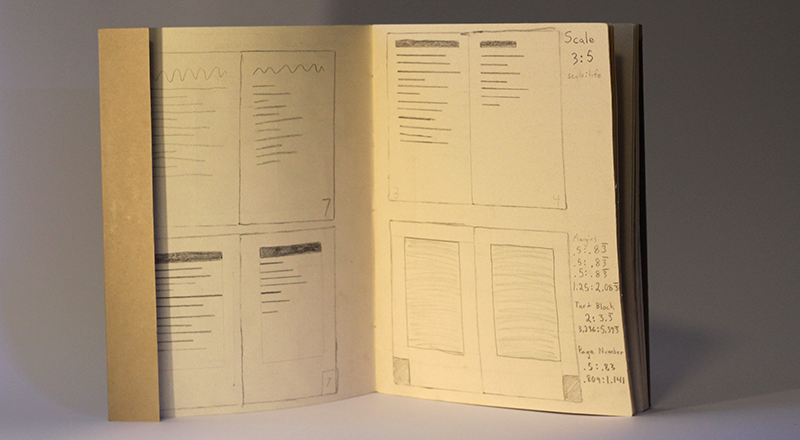 7
3
4
Scale
3:5
scale:life
Margins
.5:.83̅
.5:.83̅
.5:.83̅
1.25:2.083̅
Text Block
2:3.3̅
3.236:5.393̅
Page Number
.5:.83
.809:1.141